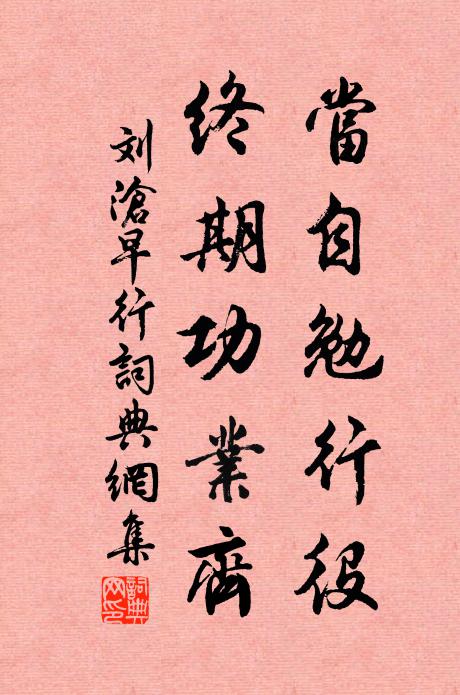 當自勉行役
終期功業齊
刘滄早行詞典網集
詞典網印